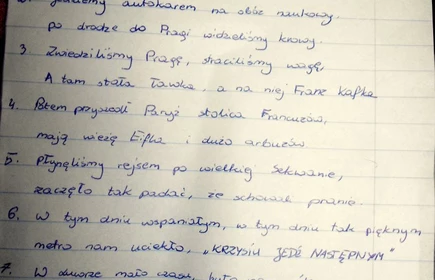 2. Jedziemy autokarem na obóz naukowy.
po drodze do Pragi widzieliśmy krowy.
3. Zwiedziliśmy Pragę, straciliśmy wagę,
A tam stała ławka, a na niej Franc Kafka
4. Potem przywodził Paryż stolica Francuzów,
mają wieżę Eifla i dużo arbuzów.
5. Płynęliśmy rejsem po wielkiej Sekwanie,
zaczęło tak padać, że schować pranie.
6. W tym dniu wspaniałym, w tym dniu tak pięknym
metro nam uciekło, „KRZYSIU JEDŹ NASTĘPNYM"
7. W dworze mało czasu, było